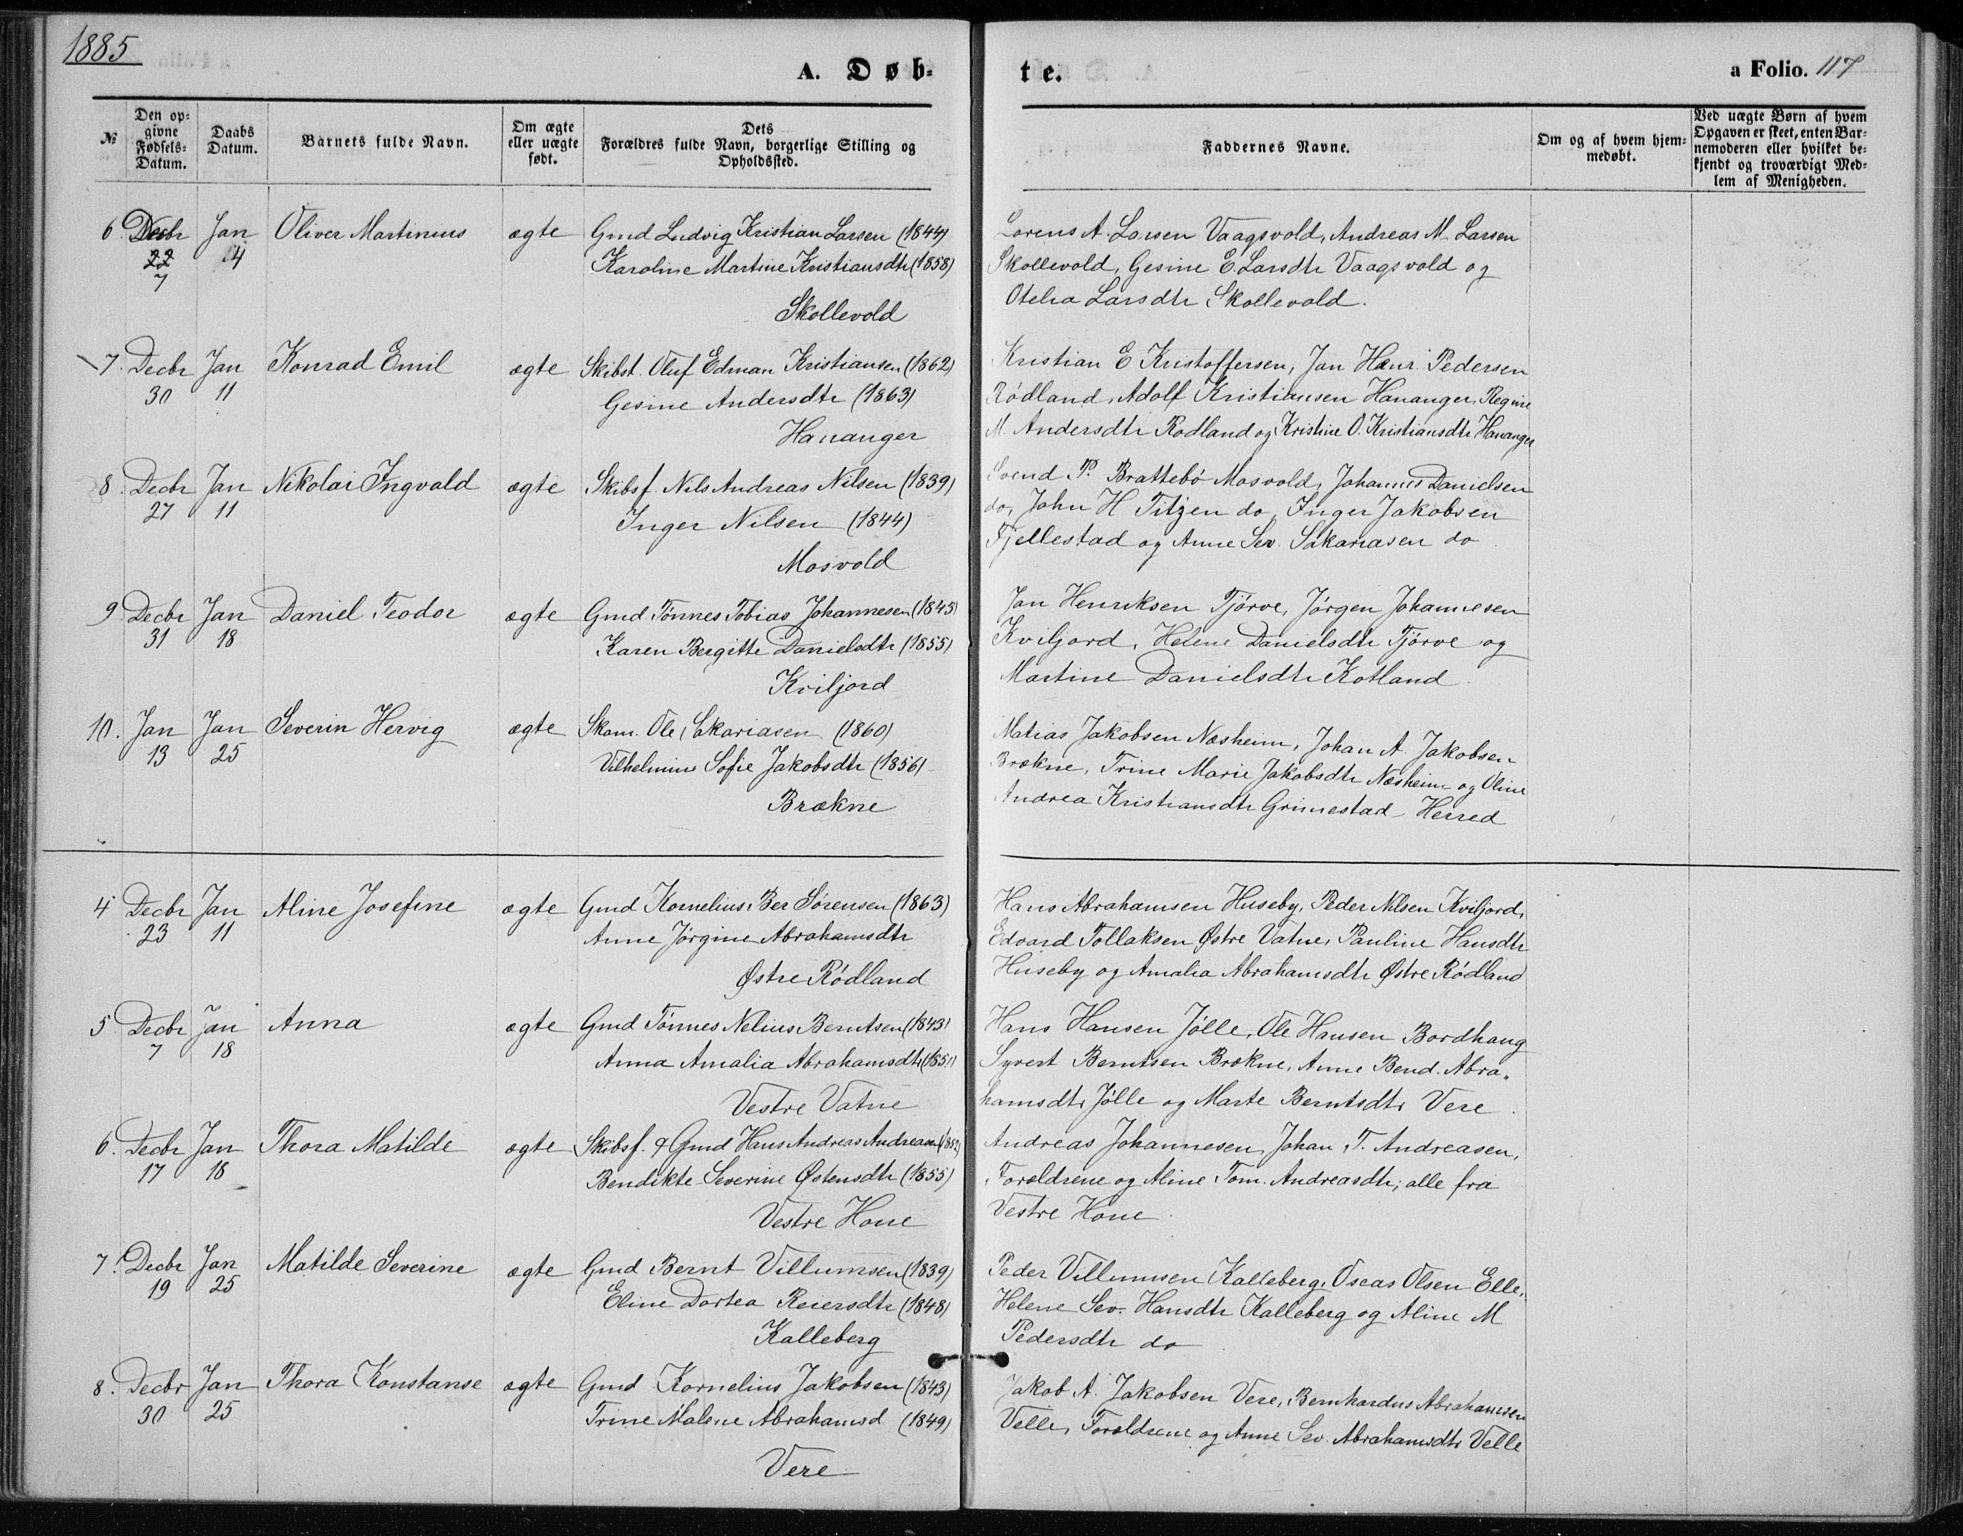 1885
A. Døb-
te.
a Folio. 117
№
Den op-
givne
Fødsels-
Datum.
Daabs
Datum.
Barnets fulde Navn.
Om ægte
eller uægte
født.
Dets
Forældres fulde Navn, borgerlige Stilling og
Opholdssted.
Faddernes Navne.
Om og af hvem hjem-
medøbt.
Ved uægte Børn af hvem
Opgaven er skeet, enten Bar-
nemoderen eller hvilket be-
kjendt og troværdigt Med-
lem af Menigheden.
6 Decbr Jan Oliver Martinius ægte Gmd Ludvig Kristian Larsen (1844)
22 4 Karoline Martine Kristiansdtr (1858)
7
Skollevold
Lorens A. Larsen Vaagsvold, Andreas M. Larsen
Skollevold, Gesine E. Larsdtr Vaagsvold og
Otelia Larsdtr Skollevold.
7. Decbr Jan Konrad Emil ægte Skibst. Oluf Edman Kristiansen (1862)
30 11 Gesine Andersdtr (1863)
Hananger
Kristian E Kristoffersen, Jan Henr. Pedersen
Rødland, Adolf Kristiansen Hananger, Regine
M. Andersdtr Rødland og Kristine O. Kristiansdtr Hananger
8. Decbr Jan Nikolai Ingvald ægte Skibsf. Nils Andreas Nilsen (1839)
27 11 Inger Nilsen (1844)
Mosvold
Svend P. Brattebø Mosvold, Johannes Danielsen
do, John H Titzen do, Inger Jakobsen
Fjellestad og Anne Sev. Sakariasen do
9. Decbr Jan Daniel Teodor ægte Gmd Tønnes Tobias Johannesen (1845)
31 18 Karen Bergitte Danielsdtr (1855)
Kviljord
Jan Henriksen Tjørve, Jørgen Johannesen
Kviljord, Helene Danielsdtr Tjørve og
Martine Danielsdtr Kotland.
10. Jan Jan Severin Hervig ægte Skom. Ole Sakariasen (1860)
13 25 Vilhelmine Sofie Jakobsdtr (1856)
Brækne
Matias Jakobsen Næsheim, Johan A. Jakobsen
Brækne, Trine Marie Jakobsdtr Næsheim og Oline
Andrea Kristiansdtr Grimestad Herred
4 Decbr Jan Aline Josefine ægte Gmd Kornelius Ber Sørensen (1863)
23 11 Anne Jørgine Abrahamsdtr
Østre Rødland
Hans Abrahamsen Huseby, Peder Nilsen Kviljord,
Edvard Tollaksen Østre Vatne, Pauline Hansdtr
Huseby og Amalia Abrahamsdtr Østre Rødland
5 Decbr Jan Anna ægte Gmd Tønnes Nelius Berntsen (1843)
7 18 Anna Amalia Abrahamsdtr
Vestre Vatne
Hans Hansen Jølle, Ole Hansen Bordhaug
Syvert Berntsen Brækne, Anne Bend. Abra-
hamsdtr Jølle og Marte Berntsdtr Vere.
6. Decbr Jan Thora Matilde ægte Skibsf. & Gmd Hans Andreas Andreasen (1852)
17 18 Bendikte Severine Østensdtr (1855)
Vestre Hone
Andreas Johannesen, Johan T. Andreasen,
Forældrene og Aline Tom. Andreasdtr; alle fra
Vestre Hone
7. Decbr Jan Matilde Severine ægte Gmd Bernt Villumsen (1839)
19 25 Eline Dortea Reiersdtr (1848)
Kalleberg
Peder Villumsen Kalleberg, Oscar Olsen Elle,
Helene Sev. Hansdtr Kalleberg og Aline M
Pedersdtr do
8. Decbr Jan Thora Konstanse ægte Gmd Kornelius Jakobsen (1843)
30 25 Trine Malene Abrahamsd (1849)
Vere
Jakob A. Jakobsen Vere, Bernhardus Abrahamsen
Velle, Forældrene og Anne Sev. Abrahamsdtr Velle